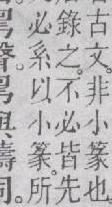 古文。非小篆也
錄之。不必皆先
必系以小篆。所
聲。與壽同。